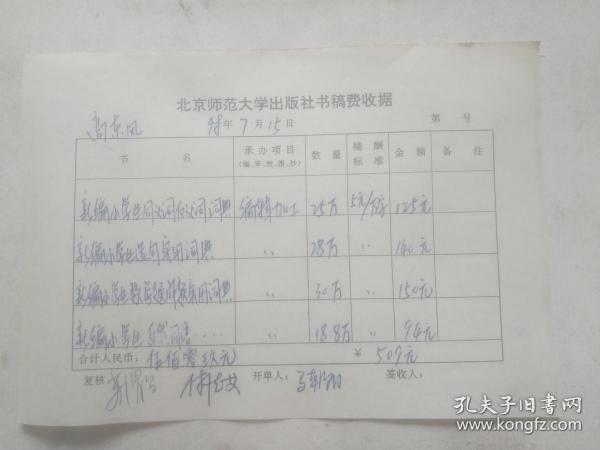 北京师范大学出版社书稿费收据
高东风 94年7月15日 第 号
书 名 承办项目(编、审、校、图、抄) 数量 稿酬标准 金额 备注
新编小学生同义词反义词词典 编辑加工 25万 5元/万字 125元
新编小学生造句实用词典 〃 28万 〃 140元
新编小学生数学题解题实用词典 〃 30万 〃 150元
新编小学生自然词语…… 18.8万 〃 94元
合计人民币:伍佰零玖元 ¥ 509元
复核: 开单人: 签收人:
孔夫子旧书网
www.kongfz.com